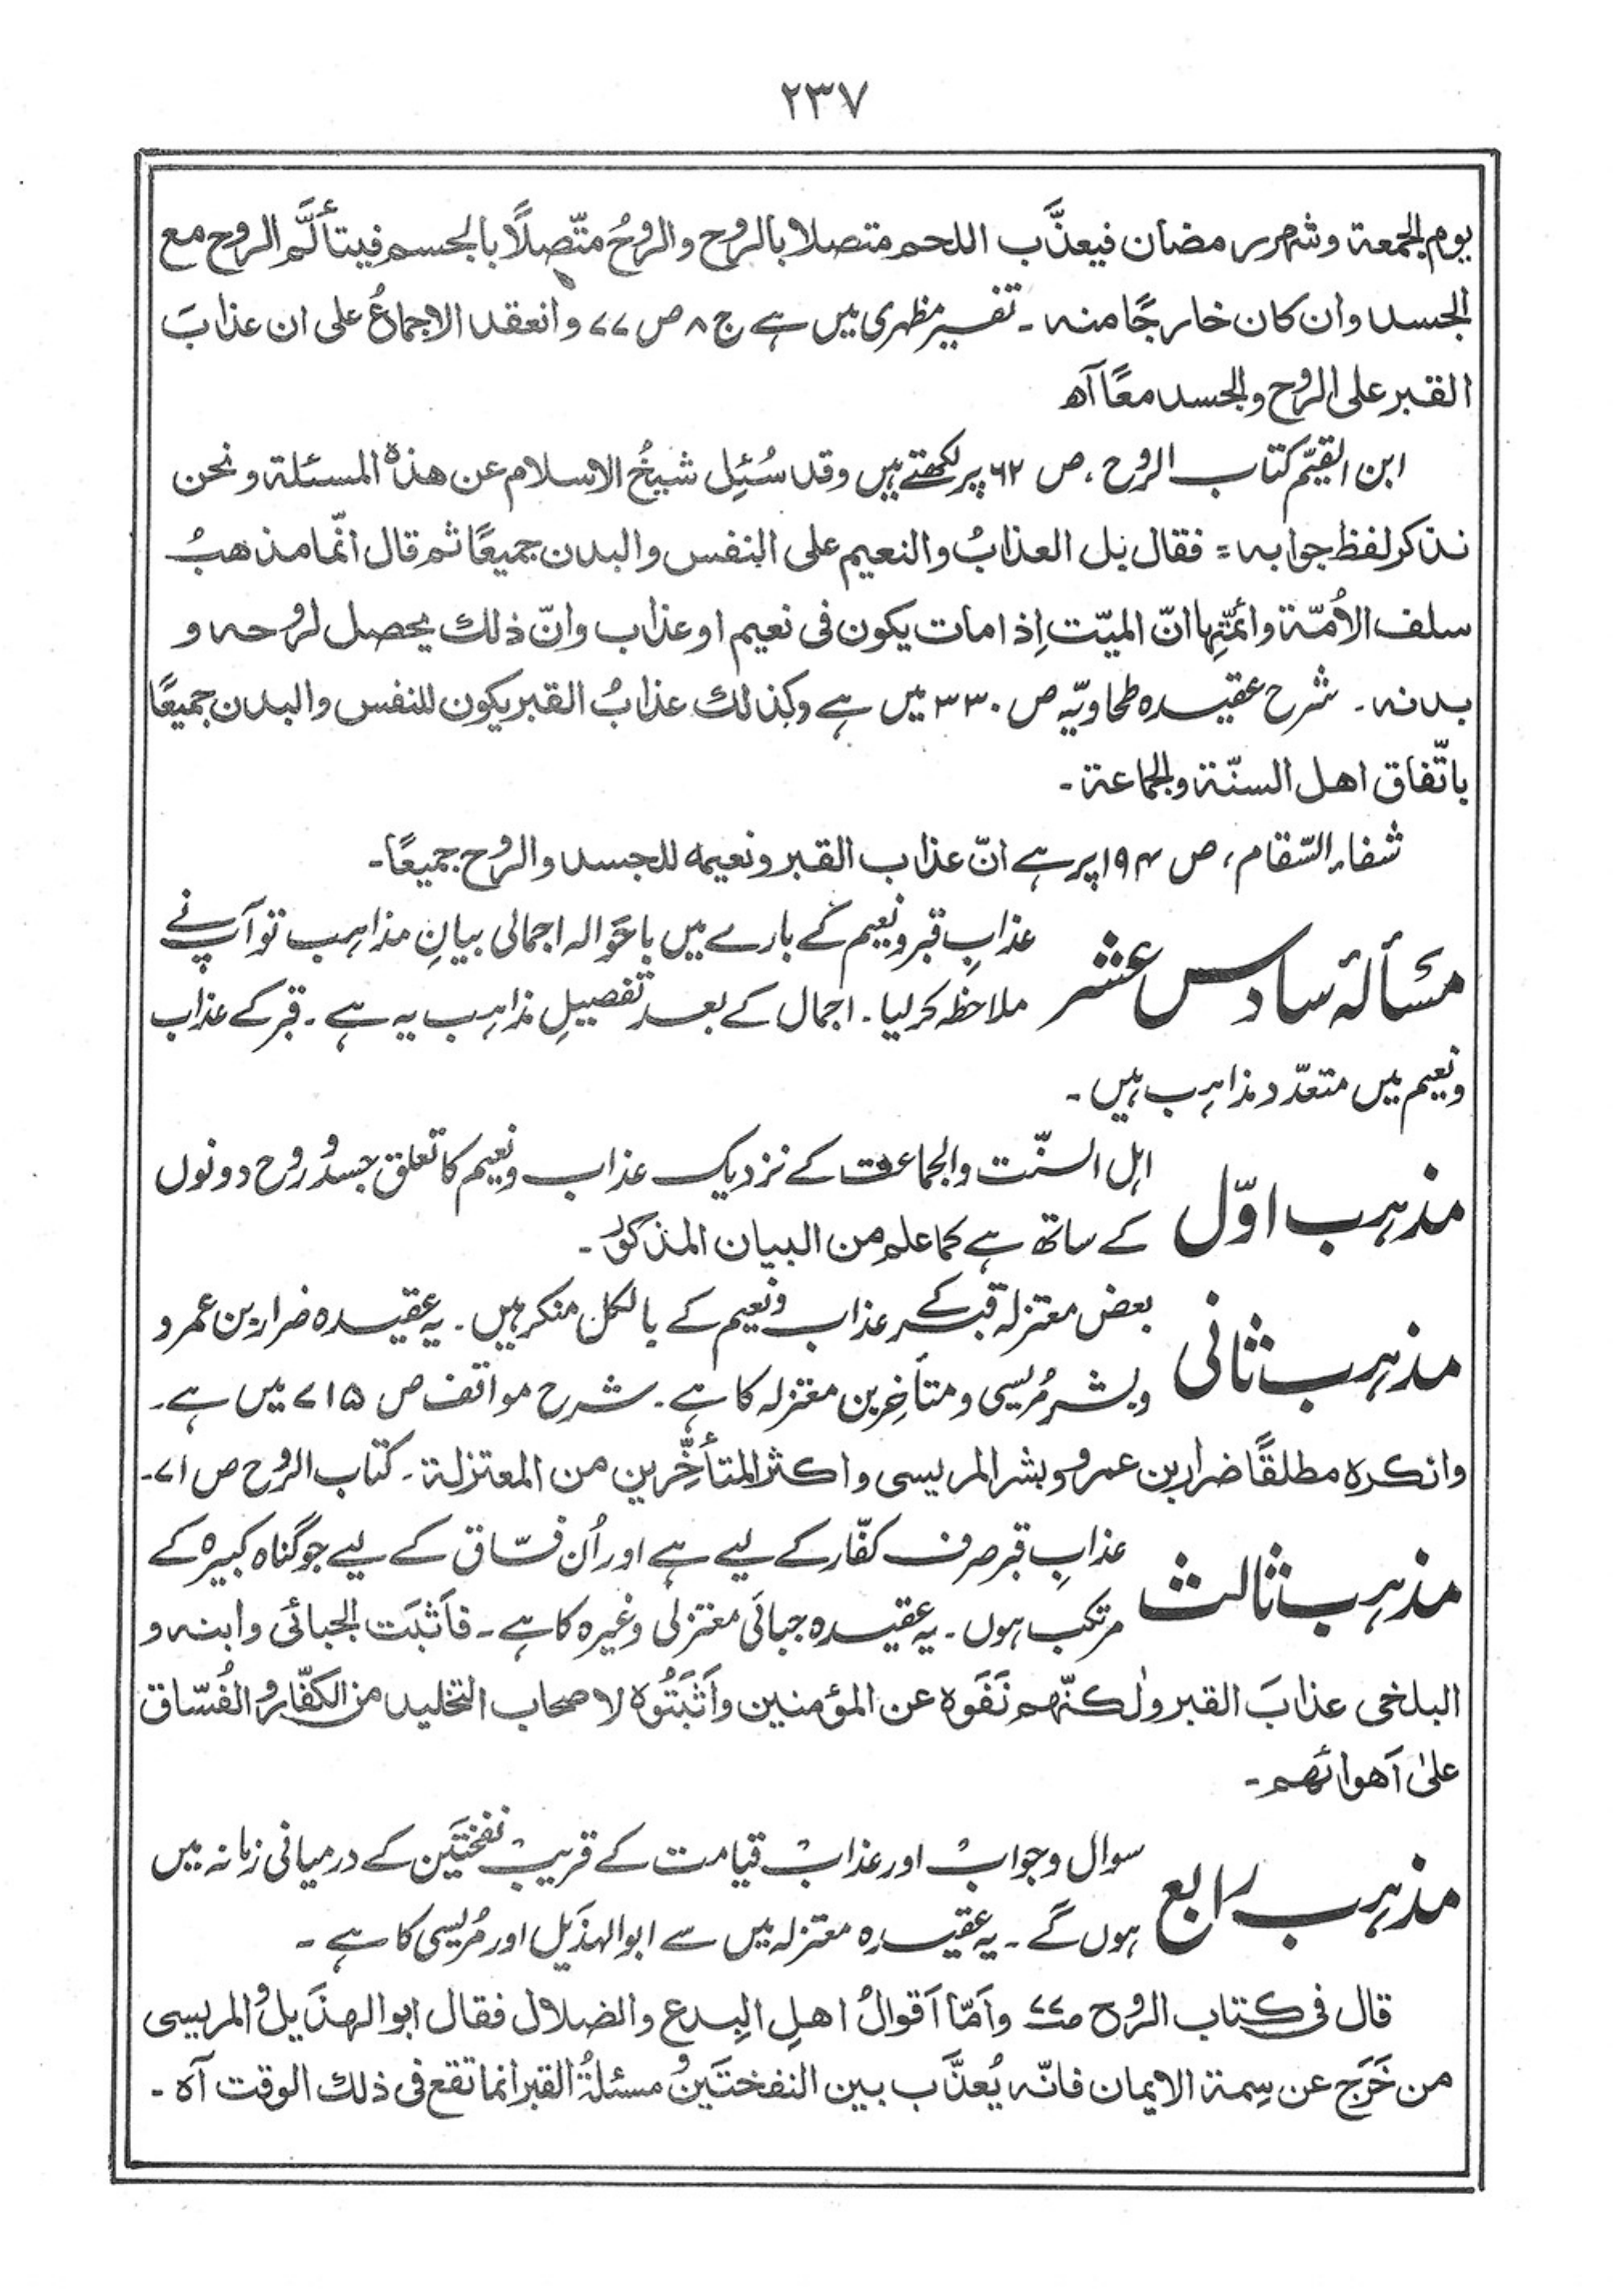 ۲۳۷
یوم الجمعة وشهر رمضان فیعذَّب اللحم متصلا بالروح والروحُ متّصلًا بالجسم فیتألَّم الروح مع
الجسد وان کان خارجًا منه ۔ تفسیر مظہری میں ہے ج ۸ ص ۷۷ وانعقد الاجماعُ علی ان عذابَ
القبر علی الروح والجسد معًا آھ
ابن القیّم کتاب الروح ، ص ۶۲ پر لکھتے ہیں وقد سُئِل شیخُ الاسلام عن هذه المسئلة و نحن
نذکر لفظ جوابه = فقال بل العذابُ والنعیم علی النفس والبدن جمیعًا ثم قال انّما مذهبُ
سلف الاُمّة وائمّتِها انّ المیّت اِذا مات یکون فی نعیم او عذاب وانّ ذلك یحصل لروحه و
بدنه ۔ شرح عقیدہ طحاویّہ ص ۳۳۰ میں ہے وکذلك عذابُ القبر یکون للنفس والبدن جمیعًا
باتّفاق اهل السنّة والجماعة ۔
شفاء السّقام ، ص ۱۹۴ پر ہے انّ عذاب القبر ونعیمه للجسد والروح جمیعًا۔
مسألۂ سادس عشر عذابِ قبر و نعیم کے بارے میں باحوالہ اجمالی بیانِ مذاہب تو آپ نے
ملاحظہ کر لیا ۔ اجمال کے بعد تفصیلِ مذاہب یہ ہے ۔ قبر کے عذاب
و نعیم میں متعدّد مذاہب ہیں ۔
مذہب اوّل اہل السنّت والجماعت کے نزدیک عذاب و نعیم کا تعلق جسد و روح دونوں
کے ساتھ ہے کما علم من البیان المذکور ۔
مذہب ثانی بعض معتزلہ قبر کے عذاب و نعیم کے بالکل منکر ہیں ۔ یہ عقیدہ ضرار بن عمرو
و بشر مُریسی و متأخِرین معتزلہ کا ہے ۔ شرح مواقف ص ۷۱۵ میں ہے ۔
وانکره مطلقًا ضرار بن عمرو وبشر المریسی واکثر المتأخِّرین من المعتزلة ۔ کتاب الروح ص ۷۱۔
مذہب ثالث عذابِ قبر صرف کفّار کے لیے ہے اور اُن فسّاق کے لیے جو گناہ کبیرہ کے
مرتکب ہوں ۔ یہ عقیدہ جبائی معتزلی وغیرہ کا ہے ۔ فاَثبَت الجبائی وابنه و
البلخی عذابَ القبر ولٰکنّهم نَفَوه عن المؤمنین واَثبَتُوه لاصحاب التخلید من الکفّار والفُسّاق
علیٰ اَهوائهم ۔
مذہب رابع سوال و جواب اور عذاب قیامت کے قریب نفختَین کے درمیانی زمانہ میں
ہوں گے ۔ یہ عقیدہ معتزلہ میں سے ابوالہذَیل اور مُریسی کا ہے ۔
قال فی کتاب الروح ص۷۷ واَمّا اَقوالُ اهلِ البِدع والضلال فقال ابو الهذَیل والمریسی
من خَرَج عن سِمة الایمان فانّه یُعذَّب بین النفختَین ومسئلةُ القبر انما تقع فی ذلك الوقت آه ۔